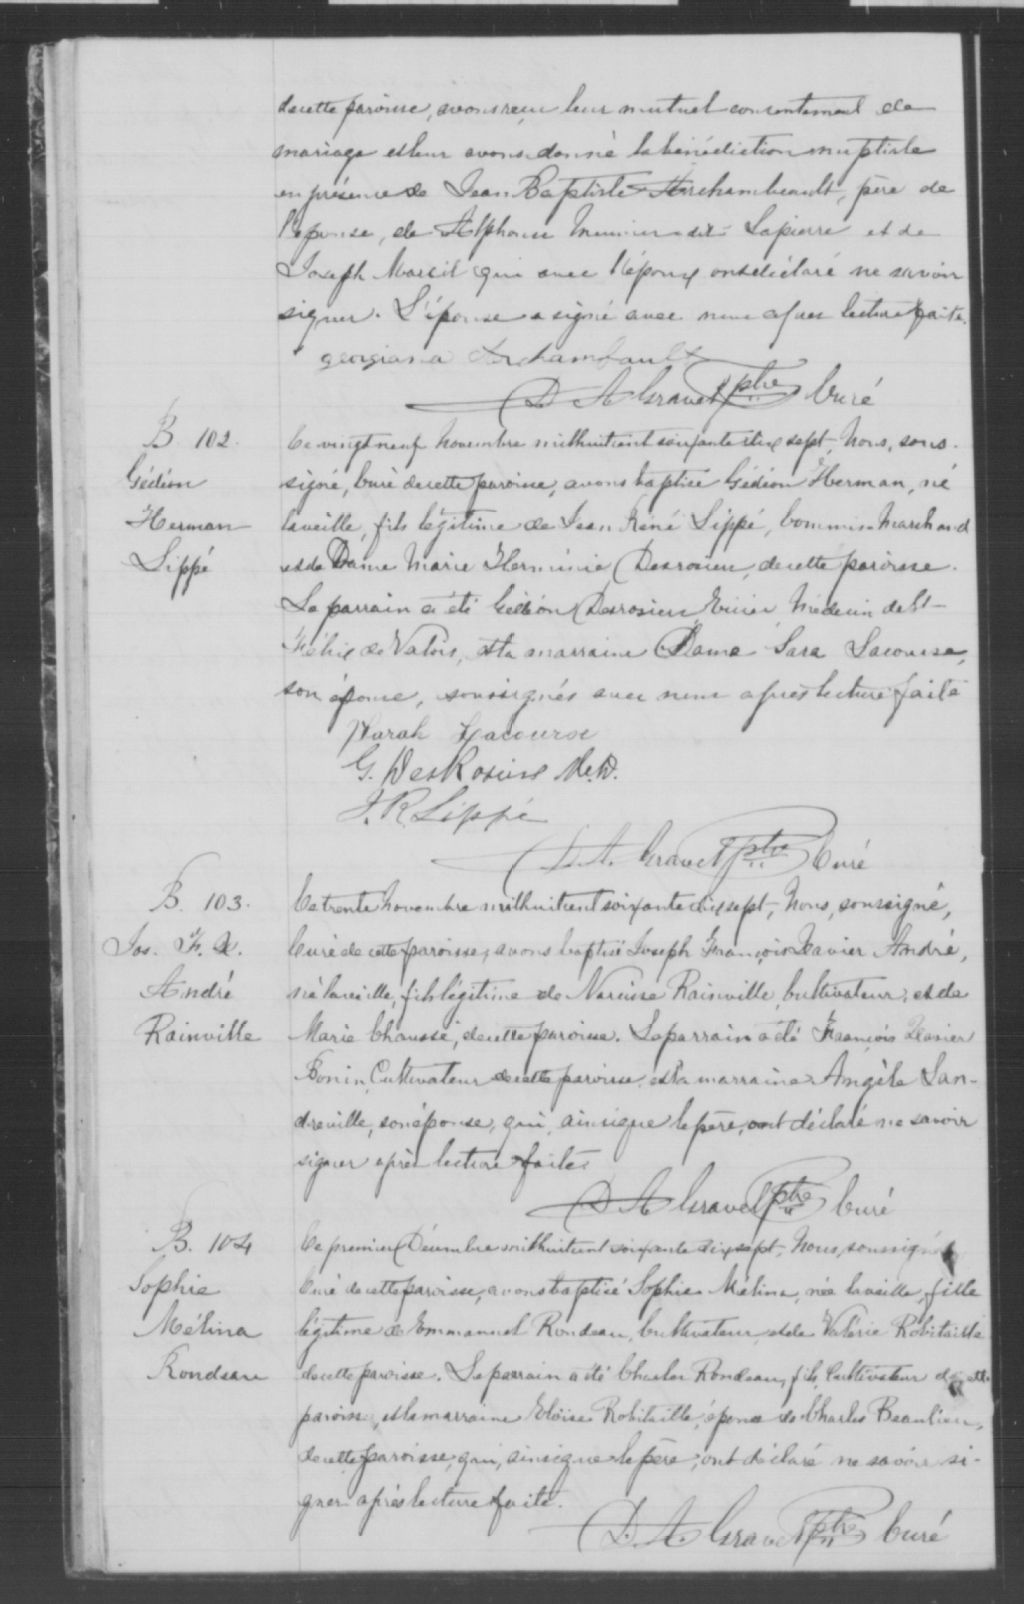 de cette paroisse, avons reçu leur mutuel consentement de
mariage et leur avons donné la bénédiction nuptiale
en présence de Jean Baptiste Archambeault, père de
l'épouse, de Alphonse Meunier dit Lapierre et de
Joseph Marcil qui avec l'époux ont déclaré ne savoir
signer. L'épouse a signé avec nous après lecture faite.
georgiana Archambault
D A Gravel Ptre Curé
B. 102.
Gédéon
Herman
Lippé
Ce vingt neuf Novembre mil huit cent soixante dix sept, Nous, sous-
signé, Curé de cette paroisse, avons baptisé Gédéon Herman, né
la veille, fils légitime de Jean Réné Lippé, Commis Marchand
et de Dame Marie Herminie Desrosiers, de cette paroisse.
Le parrain a été Gédéon Desrosiers, Ecuier Médecin de St-
Félix de Valois, et la marraine Dame Sara Lacourse,
son épouse, soussignés avec nous après lecture faite
Sarah Lacourse
G. DesRosiers M.D.
J. R. Lippé
D. A. Gravel Ptre Curé
B. 103.
Jos. F. X.
André
Rainville
Ce trente Novembre mil huit cent soixante dix sept, Nous, soussigné,
Curé de cette paroisse, avons baptisé Joseph François Xavier André,
né la veille, fils légitime de Narcisse Rainville, Cultivateur, et de
Marie Chaussé, de cette paroisse. Le parrain a été François Xavier
Bonin, Cultivateur de cette paroisse, et la marraine Angèle Lan-
dreville, son épouse, qui, ainsi que le père, ont déclaré ne savoir
signer après lecture faite.
D A Gravel Ptre Curé
B. 104
Sophie
Mélina
Rondeau
Ce premier Décembre mil huit cent soixante dix sept, Nous, soussigné
Curé de cette paroisse, avons baptisé Sophie Mélina, née la veille, fille
légitime de Emmanuel Rondeau, Cultivateur, et de Valérie Robitaille
de cette paroisse. Le parrain a été Charles Rondeau, fils, Cultivateur de cette
paroisse, et la marraine Eloïse Robitaille, épouse de Charles Beaulieu,
de cette paroisse, qui, ainsi que le père, ont déclaré ne savoir si-
gner après lecture faite.
D. A. Gravel Ptre Curé